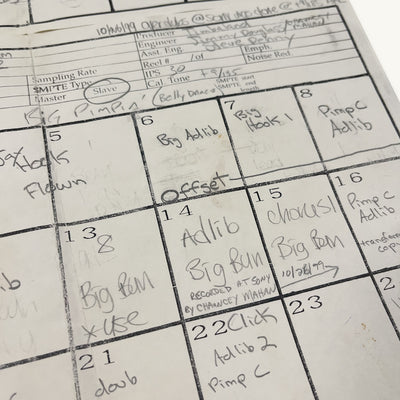 10/26/99
Producer Timbaland
Engineer Jimmy Douglas
Asst. Eng. Steve Penny
Reel # /of
Emph.
Sampling Rate
IPS 30
Noise Red
SMPTE Type
Cal Tone +9/185
SMPTE start
end
Master Slave
BIG PIMPIN' (Belly Dance)
5
Hook
Flown
6
Big Adlib
Offset
7
Big
Hook 1
8
Pimp C
Adlib
13
8
Big Bun
x USE
14
Adlib
Big Bun
RECORDED AT SONY
BY CHAUNCEY MAHAN
15
chorus 1
Big Bun
10/26/99
16
Pimp C
Adlib
transferred
copy
21
doub
22 Click
Adlib 2
Pimp C
23